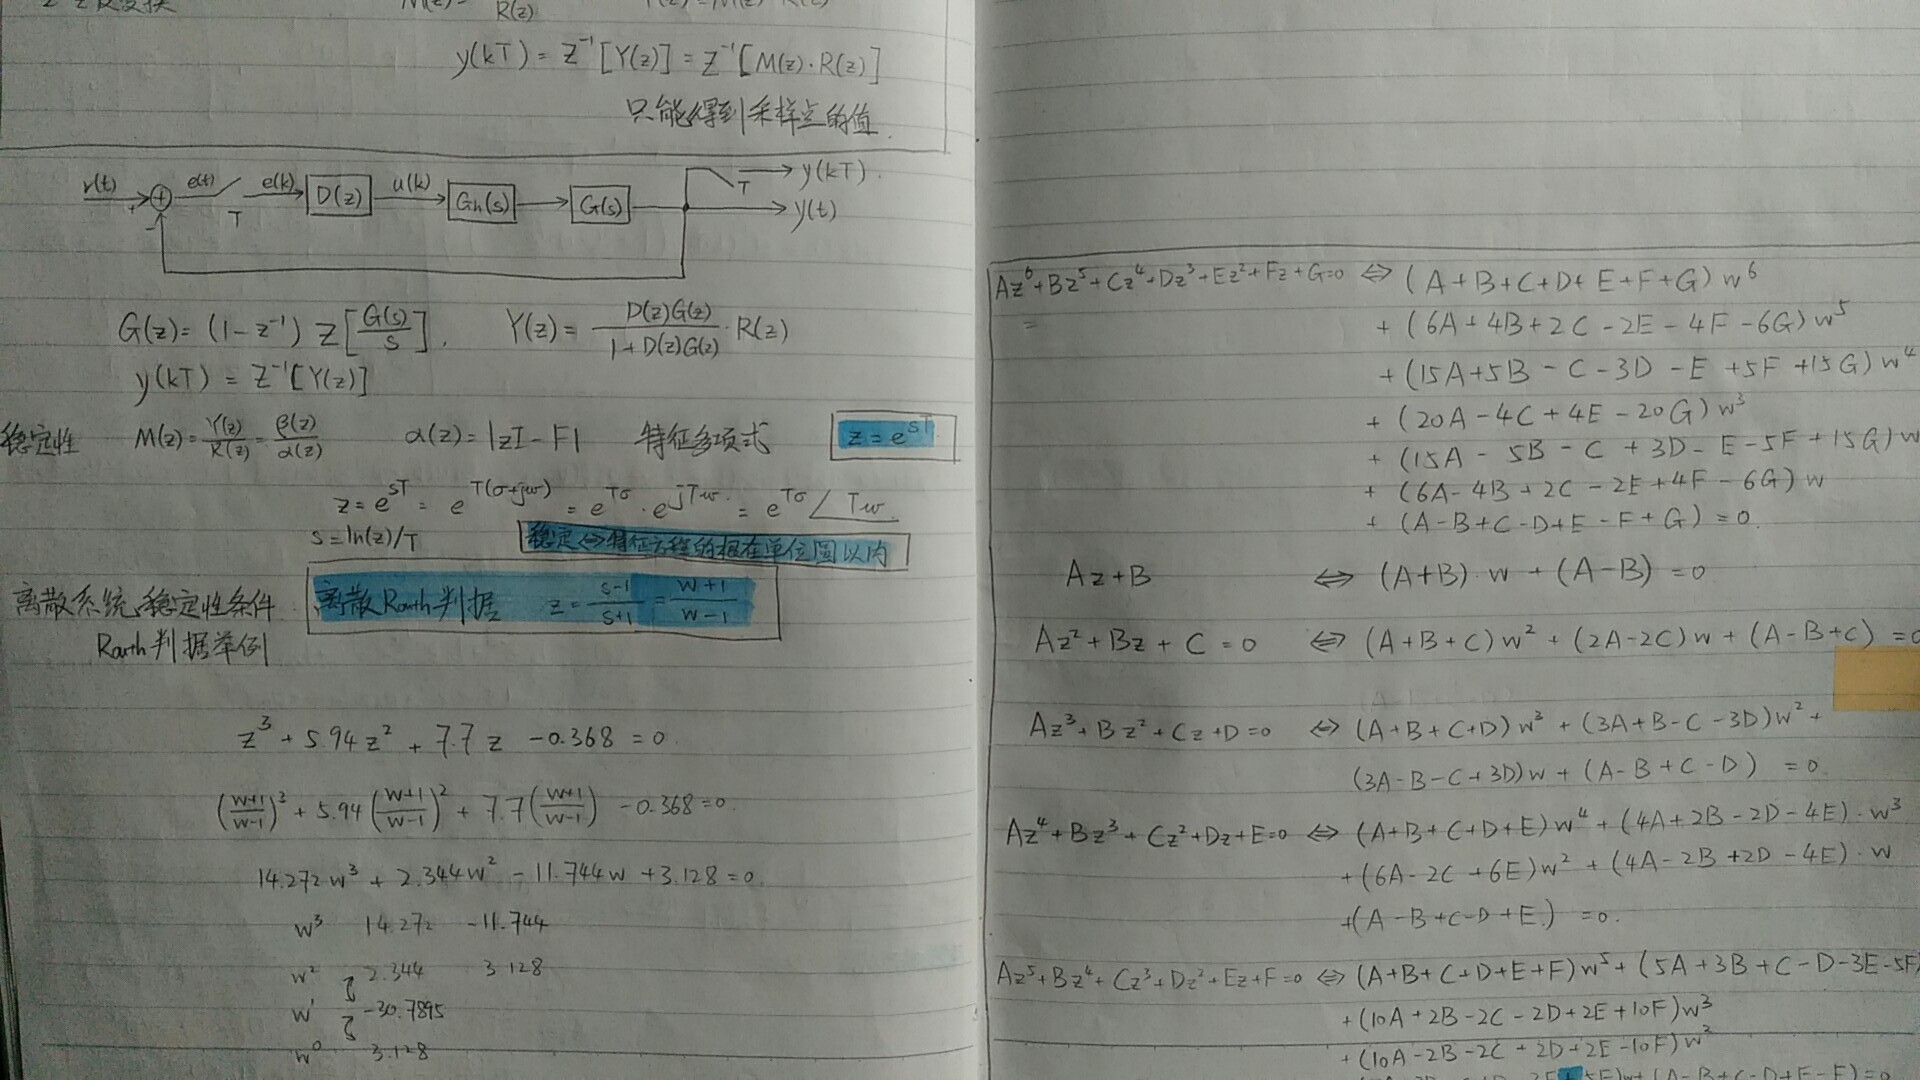 y(kT) = Z⁻¹[Y(z)] = Z⁻¹[M(z)·R(z)]
只能得到采样点的值
r(t) + - e(t) T e(k) D(z) u(k) Gh(s) G(s) T y(kT).
y(t)
G(z) = (1-z⁻¹) Z[G(s)/s]. Y(z) = D(z)G(z)/(1+D(z)G(z)) · R(z)
y(kT) = Z⁻¹[Y(z)]
稳定性 M(z) = Y(z)/R(z) = β(z)/α(z) α(z) = |zI - F| 特征多项式 z = e^{sT}
z = e^{sT} = e^{T(σ+jω)} = e^{Tσ}·e^{jTω} = e^{Tσ}∠Tω.
s = ln(z)/T 稳定⇔特征方程的根在单位圆以内
离散系统稳定性条件 离散Routh判据 z = (s-1)/(s+1) = (w+1)/(w-1)
Routh判据举例
z³ + 5.94z² + 7.7z - 0.368 = 0.
((w+1)/(w-1))³ + 5.94((w+1)/(w-1))² + 7.7((w+1)/(w-1)) - 0.368 = 0.
14.272w³ + 2.344w² - 11.744w + 3.128 = 0.
w³ 14.272 -11.744
w² 2.344 3.128
w¹ -30.7895
w⁰ 3.128
Az⁶+Bz⁵+Cz⁴+Dz³+Ez²+Fz+G=0 ⇔ (A+B+C+D+E+F+G)w⁶
= + (6A+4B+2C-2E-4F-6G)w⁵
+ (15A+5B-C-3D-E+5F+15G)w⁴
+ (20A-4C+4E-20G)w³
+ (15A-5B-C+3D-E-5F+15G)w
+ (6A-4B+2C-2E+4F-6G)w
+ (A-B+C-D+E-F+G) = 0.
Az+B ⇔ (A+B)·w + (A-B) = 0
Az²+Bz+C = 0 ⇔ (A+B+C)w² + (2A-2C)w + (A-B+C) = 0
Az³+Bz²+Cz+D=0 ⇔ (A+B+C+D)w³ + (3A+B-C-3D)w² +
(3A-B-C+3D)w + (A-B+C-D) = 0.
Az⁴+Bz³+Cz²+Dz+E=0 ⇔ (A+B+C+D+E)w⁴ + (4A+2B-2D-4E)·w³
+ (6A-2C+6E)w² + (4A-2B+2D-4E)·w
+(A-B+C-D+E.) = 0.
Az⁵+Bz⁴+Cz³+Dz²+Ez+F=0 ⇔ (A+B+C+D+E+F)w⁵ + (5A+3B+C-D-3E-5F)
+ (10A+2B-2C-2D+2E+10F)w³
+ (10A-2B-2C+2D+2E-10F)w²